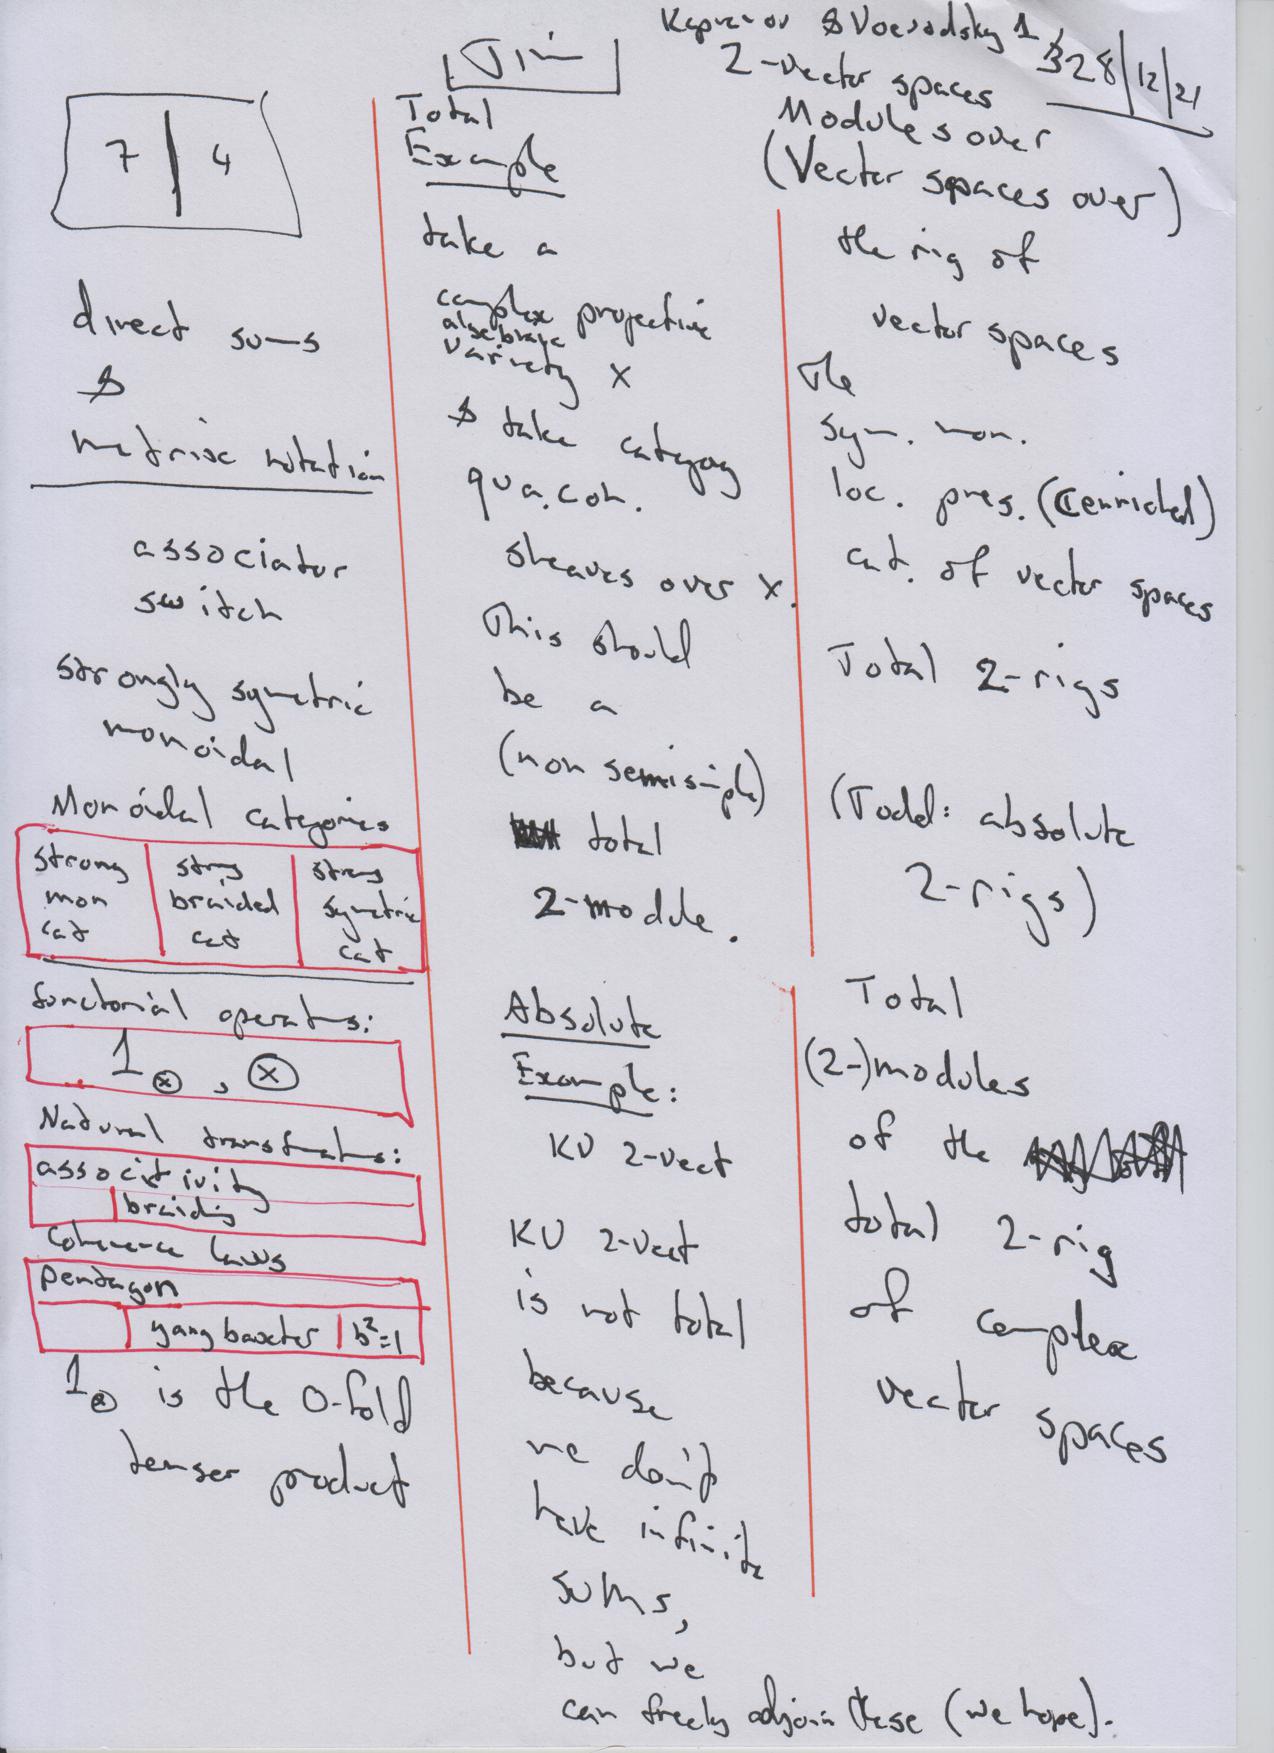 Kapranov & Voevodsky 1
28/12/21
2-vector spaces
Jim
7 | 4
direct sums
&
matrix notation
associator
switch
strongly symetric
monoidal
Monoidal categories
strong
mon
cat
strong
braided
cat
strong
symetric
cat
functorial operators:
1⊗ , ⊗
Natural transfmats:
associtivity
braiding
Coherence laws
Pentagon
yang baxter | b²=1
1⊗ is the 0-fold
tenser product
Total
Example
take a
complex projective
algebraic
variety X
& take category
qua.coh.
sheaves over X.
This should
be a
(non semisimple)
total
2-module.
Absolute
Example:
KV 2-vect
KV 2-vect
is not total
because
we don't
have infinite
sums,
but we
can freely adjoin these (we hope).
Modules over
(Vector spaces over)
the rig of
vector spaces
The
sym. mon.
loc. pres. (ℂ enriched)
cat. of vector spaces
Total 2-rigs
(Todd: absolute
2-rigs)
Total
(2-)modules
of the
total 2-rig
of complex
vector spaces